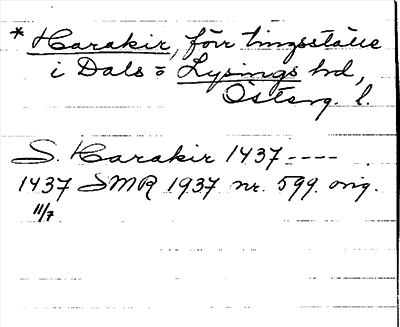 * Harakir, förr tingsställe
i Dals o Lysings hd,
Österg. l.
S. Harakir 1437 ----
1437 SMR 1937 nr. 599. orig.
11/7